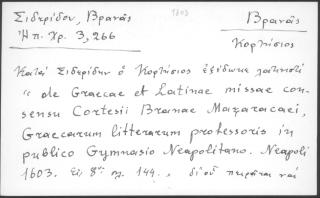 Σιδερίδου, Βρανᾶς
Ἠπ. Χρ. 3, 266
1603
Βρανᾶς
Κορτήσιος
Κατὰ Σιδερίδην ὁ Κορτήσιος ἐξέδωκε λατινιστὶ
" de Graecae et Latinae missae con-
sensu Cortesii Branae Mazaracaei,
Graecarum litterarum professoris in
publico Gymnasio Neapolitano. Neapoli
1603. Εἰς 8ον σλ. 144., δι' οὗ πειρᾶται ναὶ